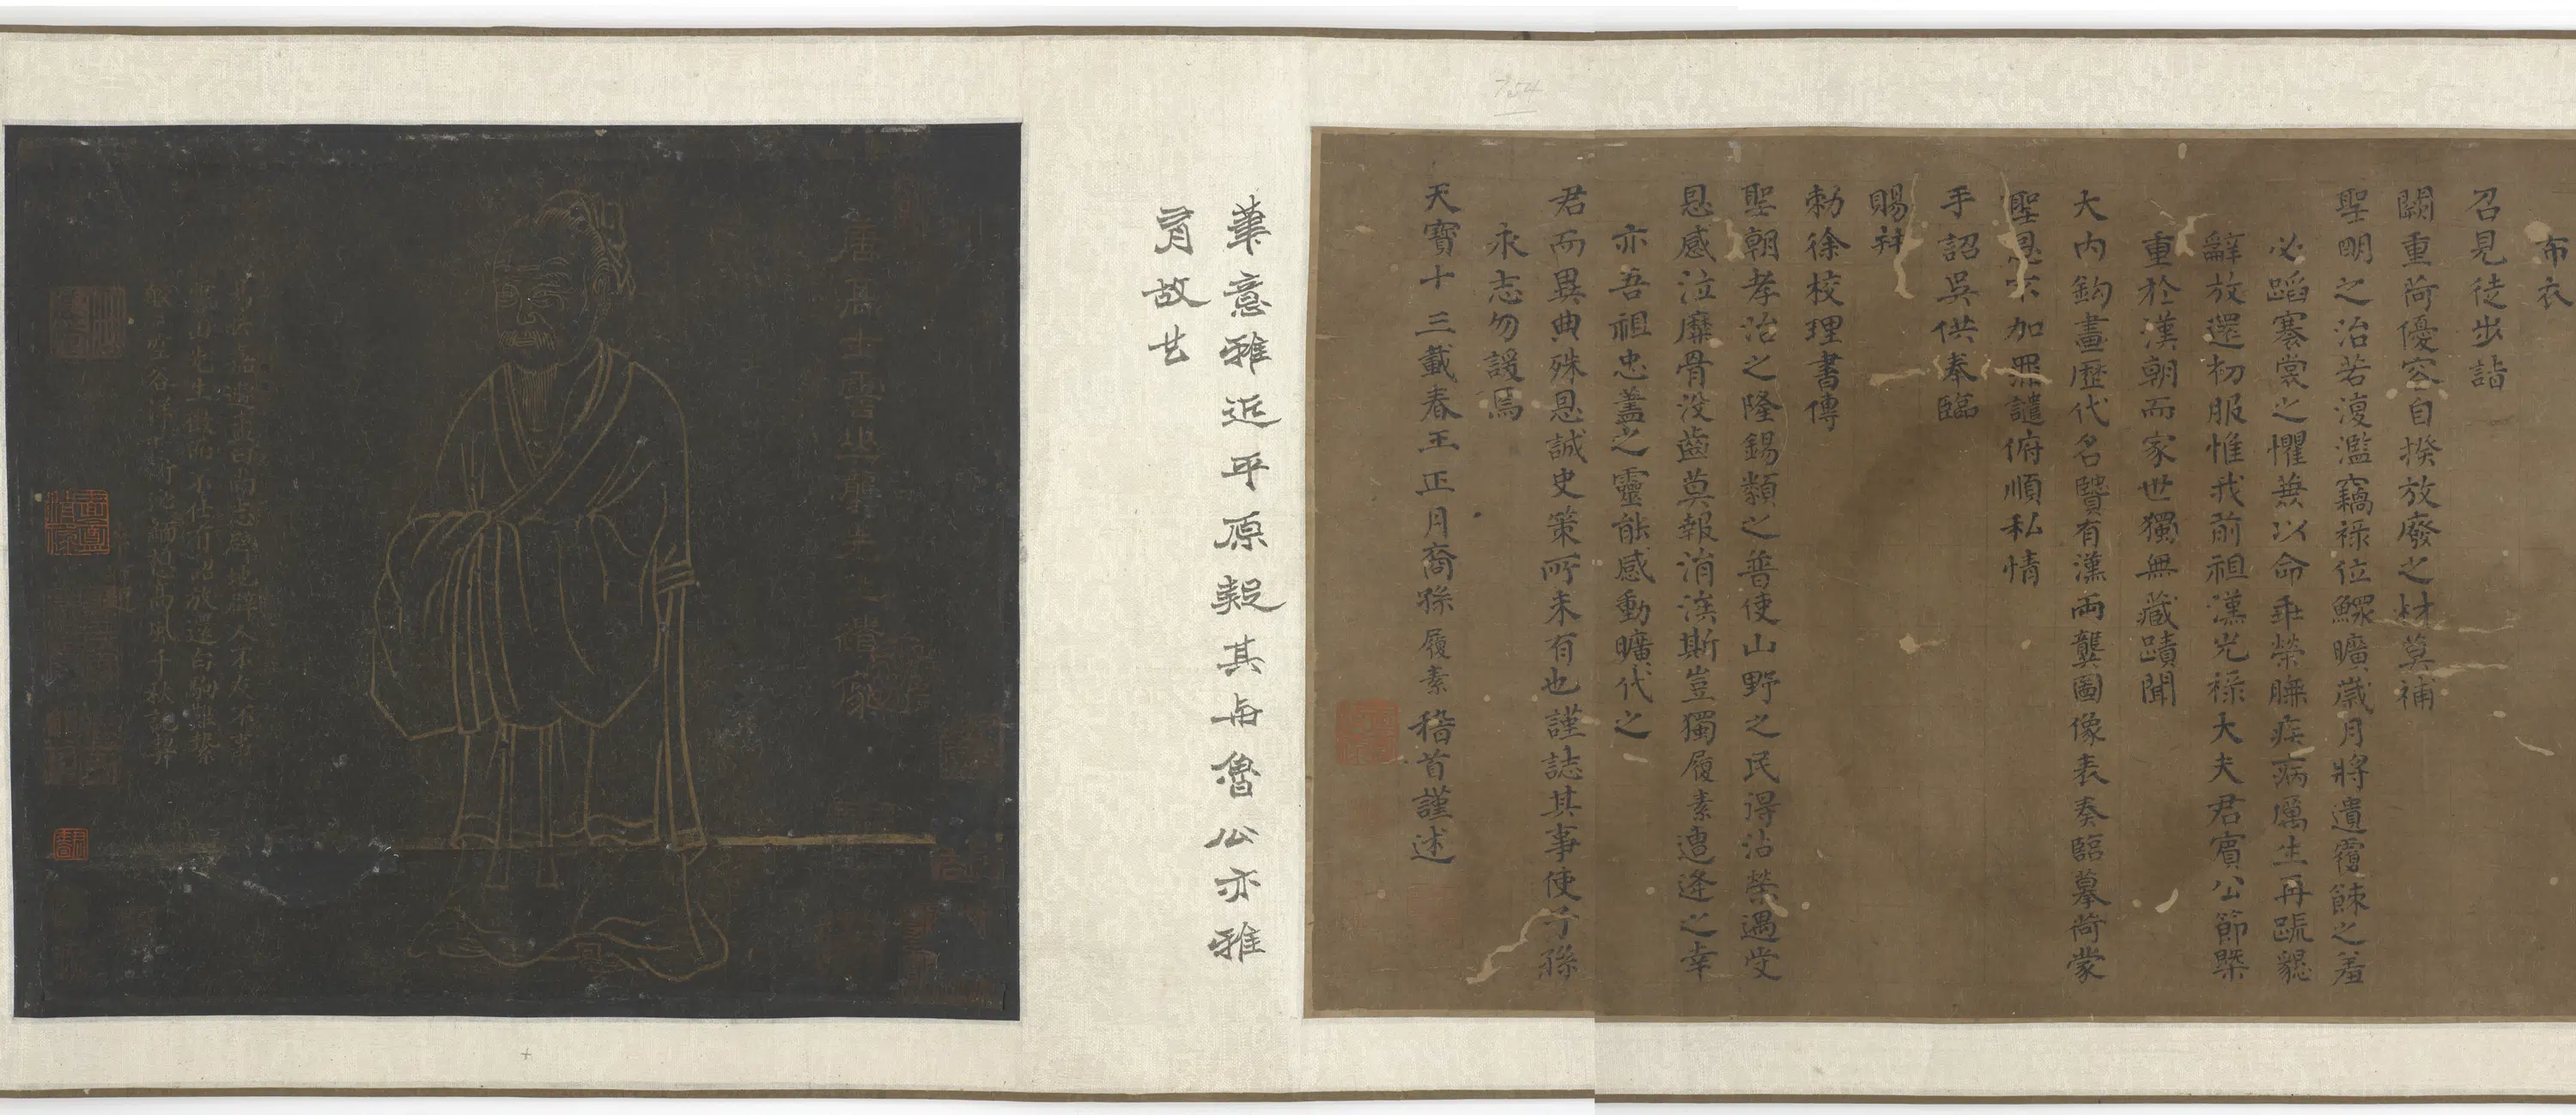 布衣
召見徒步詣
闕重荷優容自揆放廢之材莫補
聖明之治若復濫竊祿位鰥曠歲月將遺覆餗之羞
必蹈褰裳之懼兼以命乖榮膴疾病厲生再疏懇
辭放還初服惟我前祖漢光祿大夫君賓公節槩
重於漢朝而家世獨無藏蹟聞
大內鈎畫歷代名賢有漢兩龔圖像表奏臨摹荷蒙
聖恩不加罪譴俯順私情
手詔吳供奉臨
賜并
勅徐校理書傳
聖朝孝治之隆錫類之普使山野之民得沾榮遇受
恩感泣靡骨没齒莫報涓涘斯豈獨履素遭逢之幸
亦吾祖忠藎之靈能感動曠代之
君而異典殊恩誠史策所未有也謹誌其事使子孫
永志勿諼焉
天寶十三載春王正月裔孫履素稽首謹述
754
筆意雅近平原疑其與魯公亦雅
有故也
唐處士雲巖龔先生之遺像
先生徵而不仕有詔放還白駒難縶
空谷 高風千秋